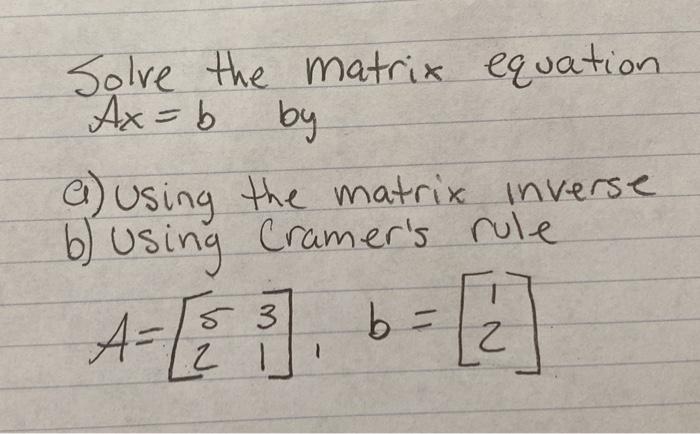 Solve the matrix equation
Ax = b by
a) using the matrix inverse
b) using Cramer's rule
A = [5 3
2 1], b = [1
2]